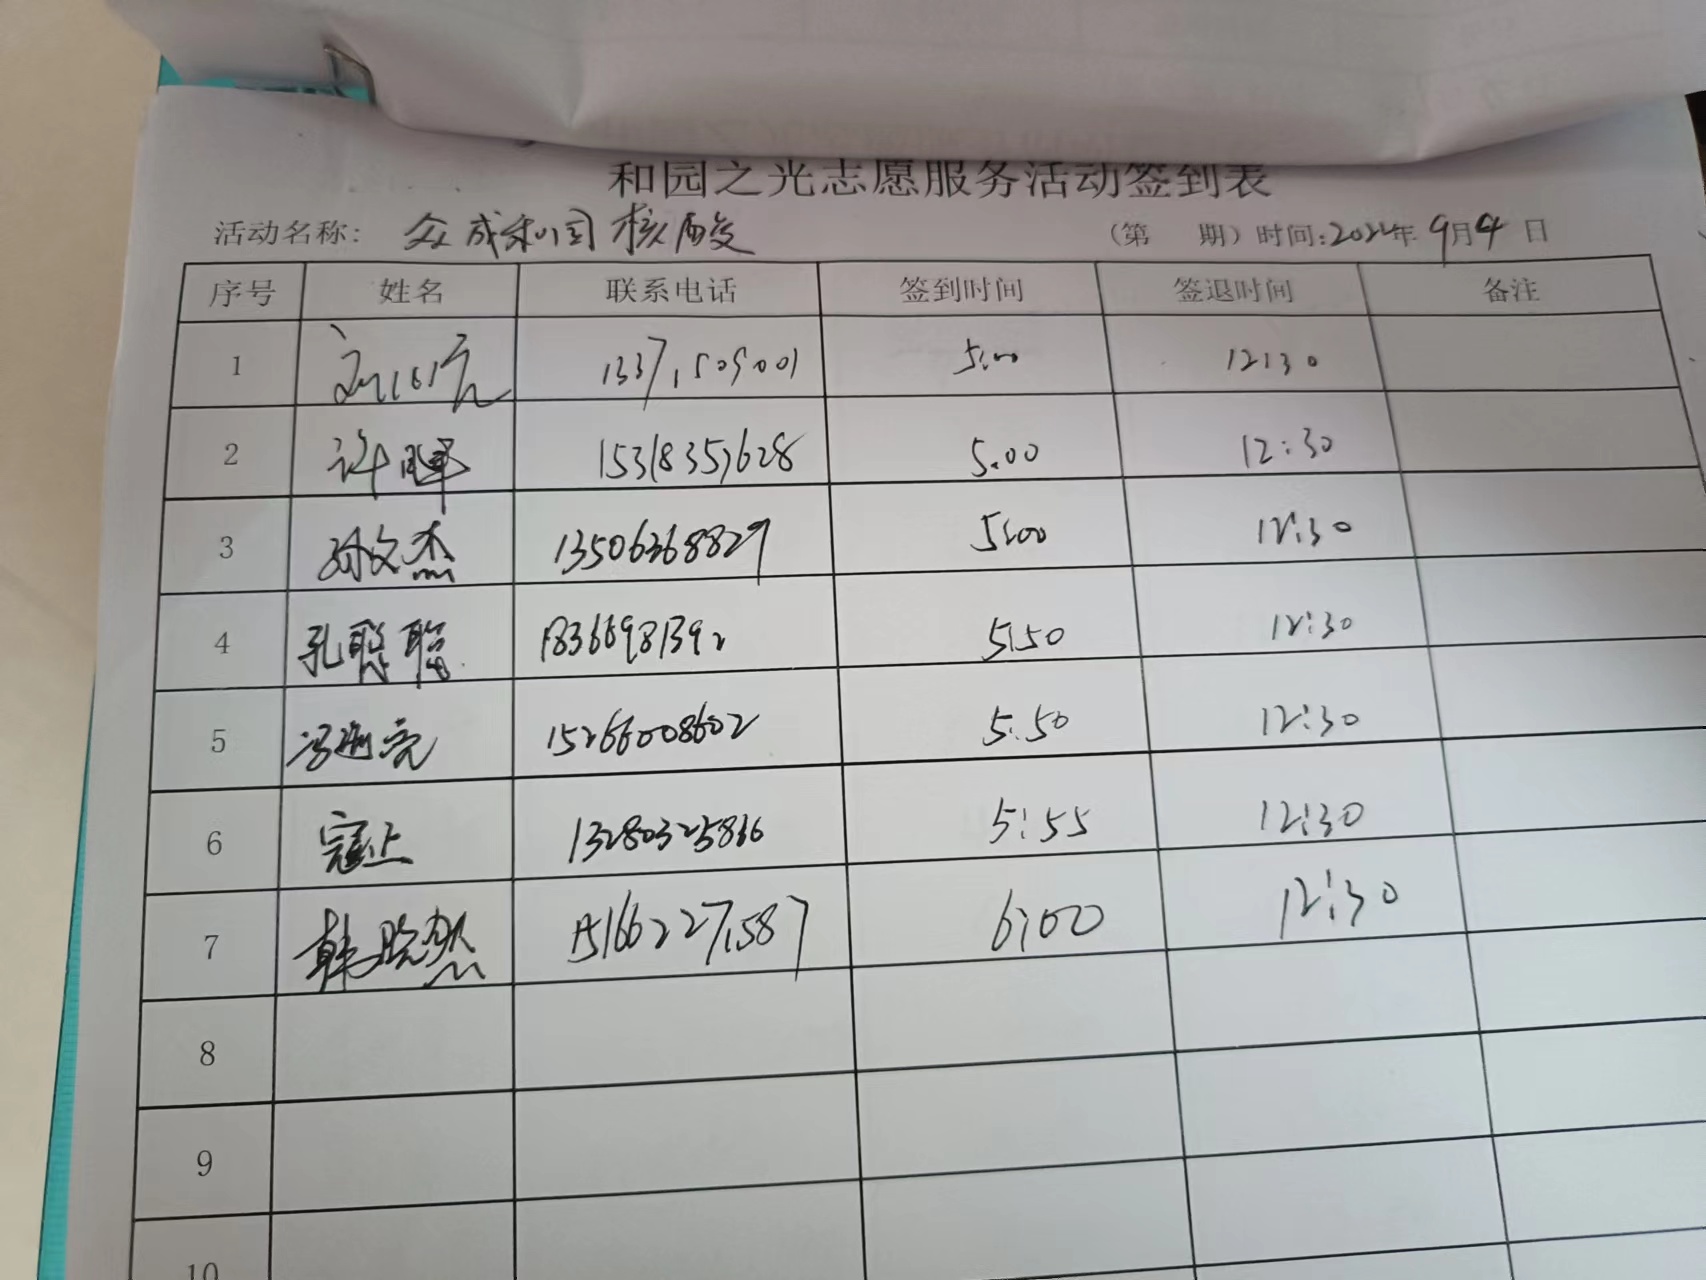 和园之光志愿服务活动签到表
活动名称: 众成和园核酸 (第 期) 时间:2022年9月4日
序号 姓名 联系电话 签到时间 签退时间 备注
1 5:00 12:30
2 许晖 15318357628 5:00 12:30
3 孙文杰 13506368829 5:00 12:30
4 孔聪聪 18366981392 5:50 12:30
5 15266008602 5:50 12:30
6 寇上 13280325836 5:55 12:30
7 韩晓燃 15166227587 6:00 12:30
8
9
10